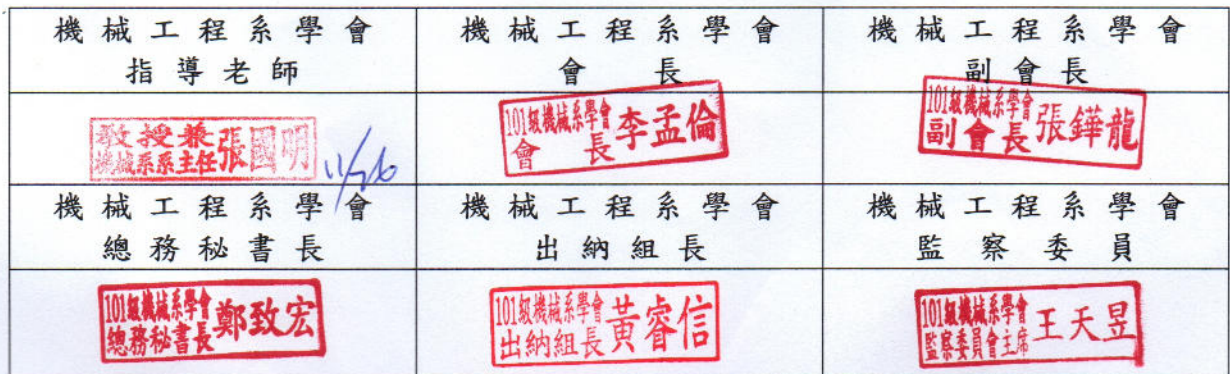 機械工程系學會
指導老師
機械工程系學會
會長
機械工程系學會
副會長
教授兼
機械系系主任
張國明
11/26
101級機械系學會
會長
李孟倫
101級機械系學會
副會長
張鏵龍
機械工程系學會
總務秘書長
機械工程系學會
出納組長
機械工程系學會
監察委員
101級機械系學會
總務秘書長
鄭致宏
101級機械系學會
出納組長
黃睿信
101級機械系學會
監察委員會主席
王天昱